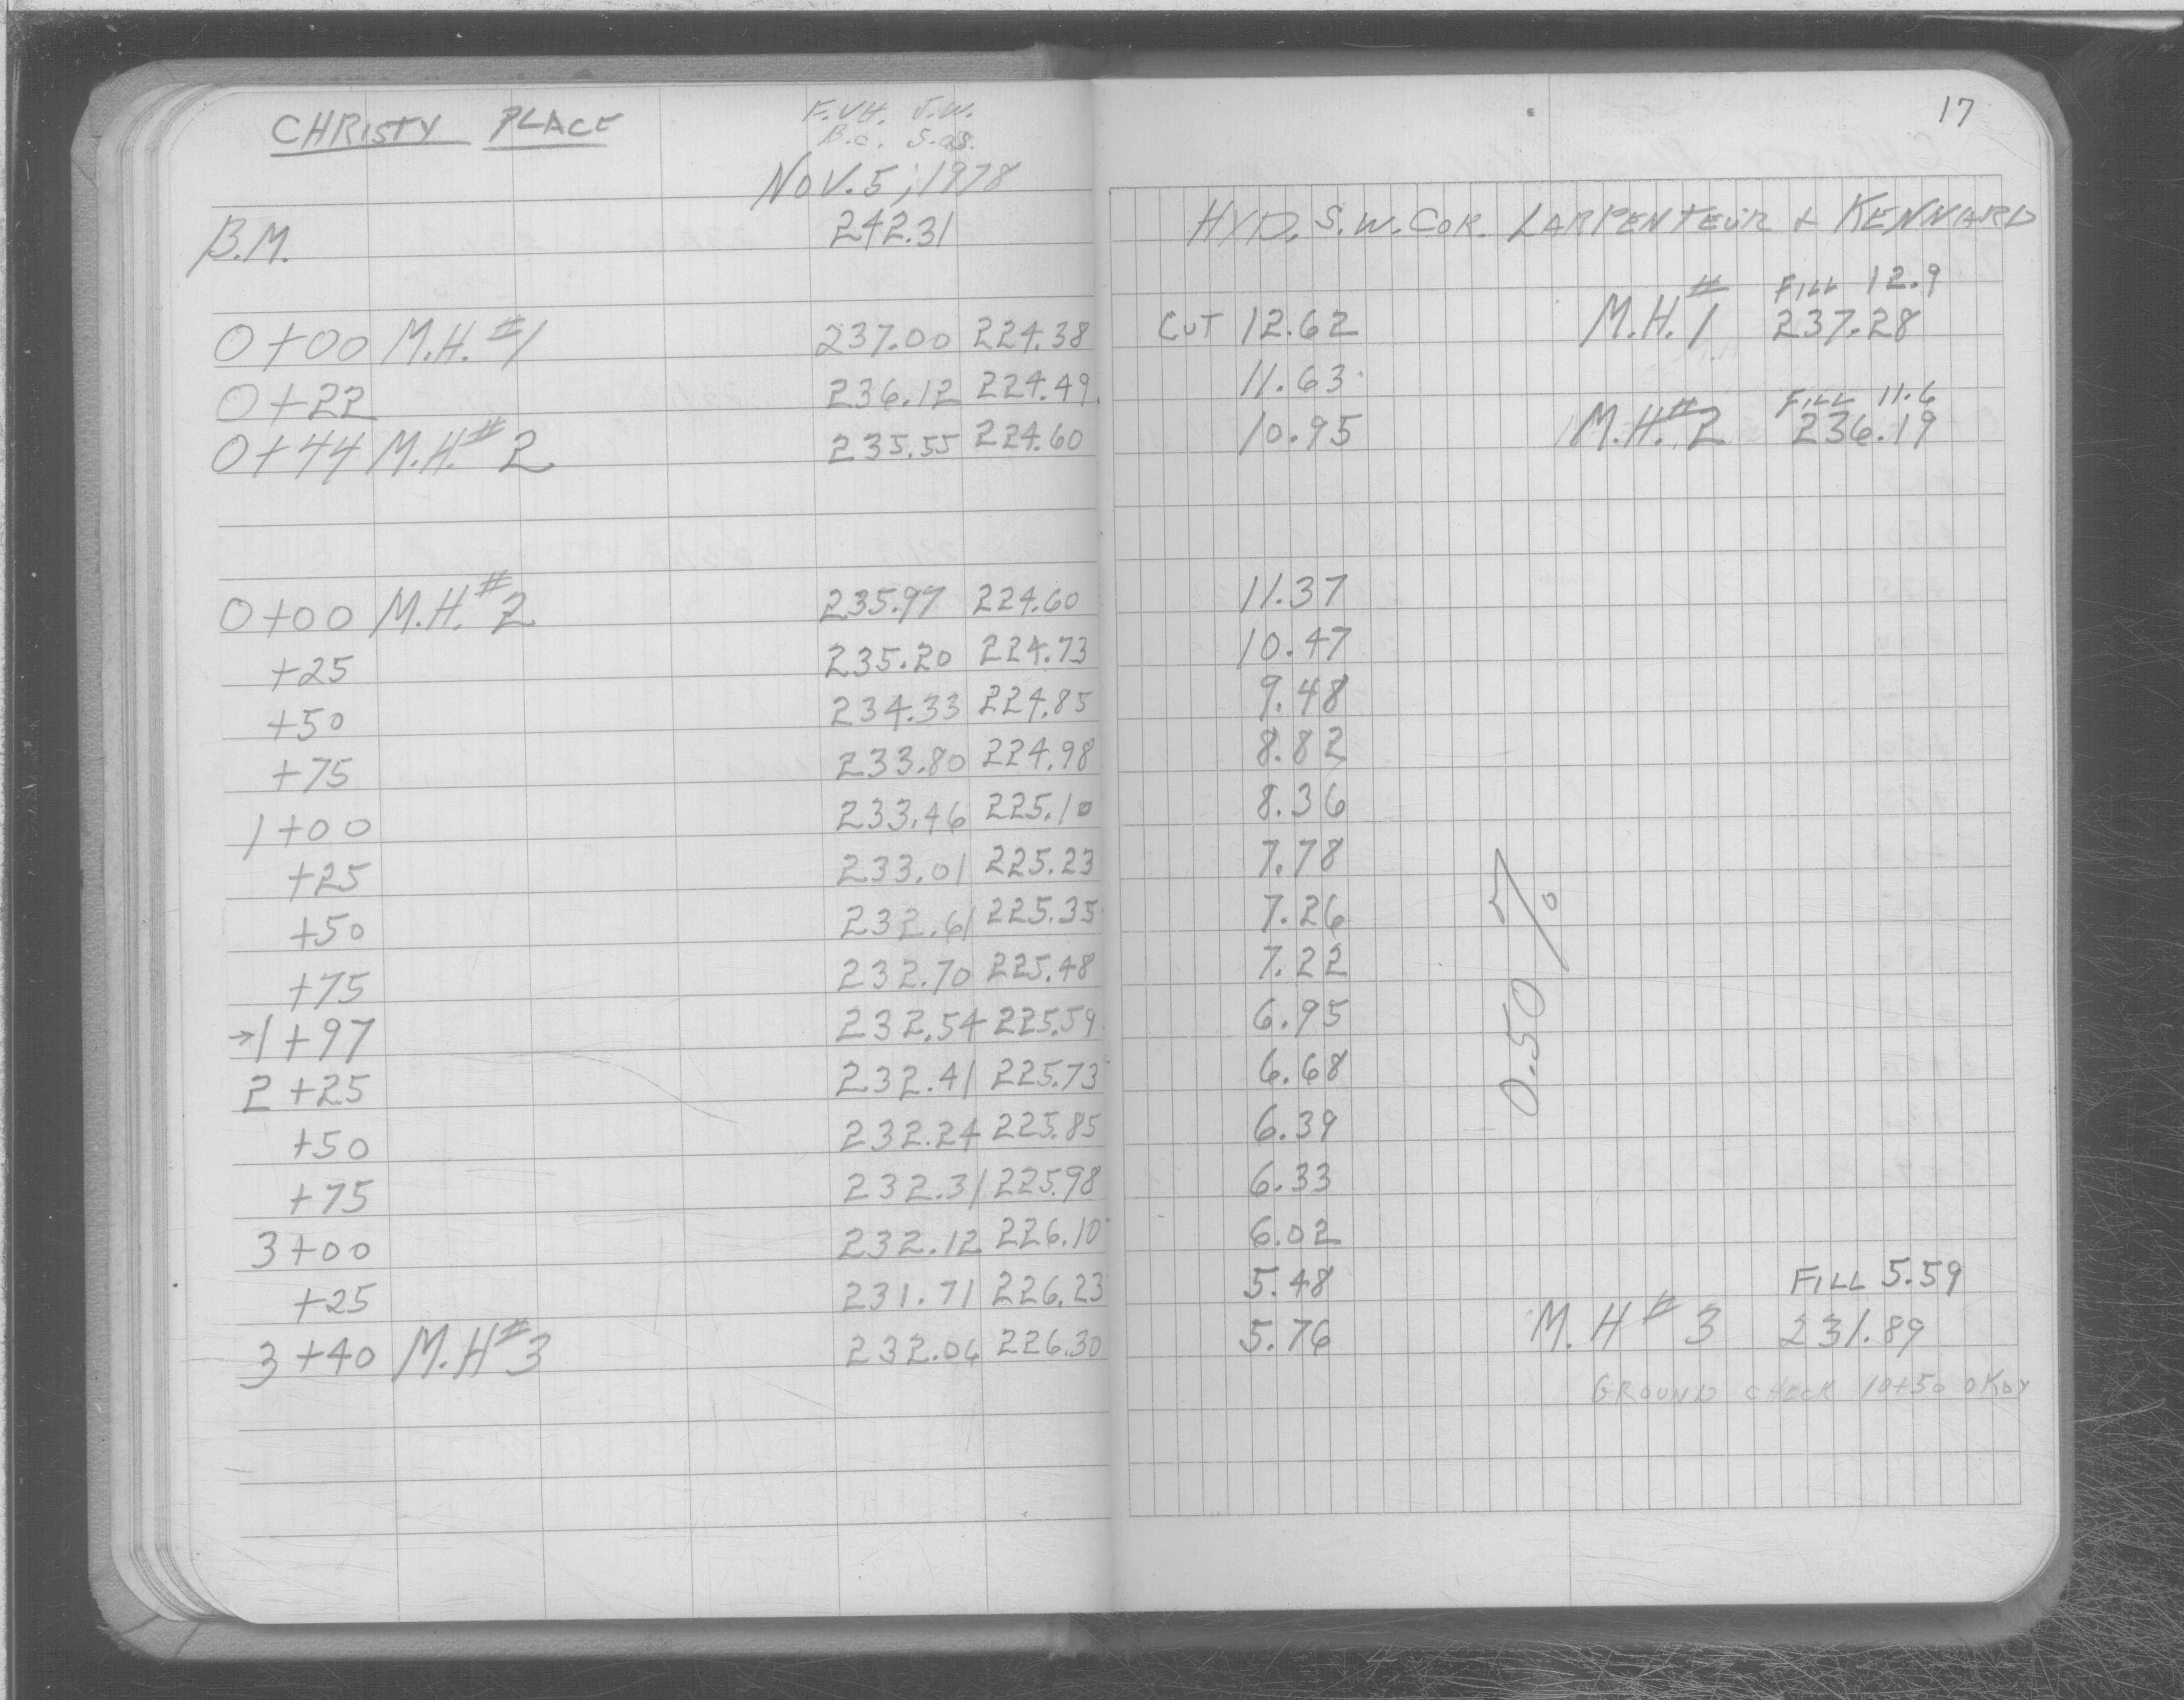 17
CHRISTY PLACE F.VH. J.W.
B.C.
NOV. 5, 1978
B.M. 242.31 HYD. S.W. COR. LARPENTEUR & KENNARD
FILL 12.9
0+00 M.H.#1 237.00 224.38 CUT 12.62 M.H.#1 237.28
0+22 236.12 224.49 11.63
FILL 11.6
0+44 M.H.#2 235.55 224.60 10.95 M.H.#2 236.19
0+00 M.H.#2 235.97 224.60 11.37
+25 235.20 224.73 10.47
+50 234.33 224.85 9.48
+75 233.80 224.98 8.82
1+00 233.46 225.10 8.36
+25 233.01 225.23 7.78
+50 232.61 225.35 7.26
+75 232.70 225.48 7.22
→1+97 232.54 225.59 6.95
2+25 232.41 225.73 6.68
+50 232.24 225.85 6.39
+75 232.31 225.98 6.33
3+00 232.12 226.10 6.02
+25 231.71 226.23 5.48 FILL 5.59
3+40 M.H#3 232.06 226.30 5.76 M.H#3 231.89
0.50 %
GROUND CHECK 10+50 OKAY